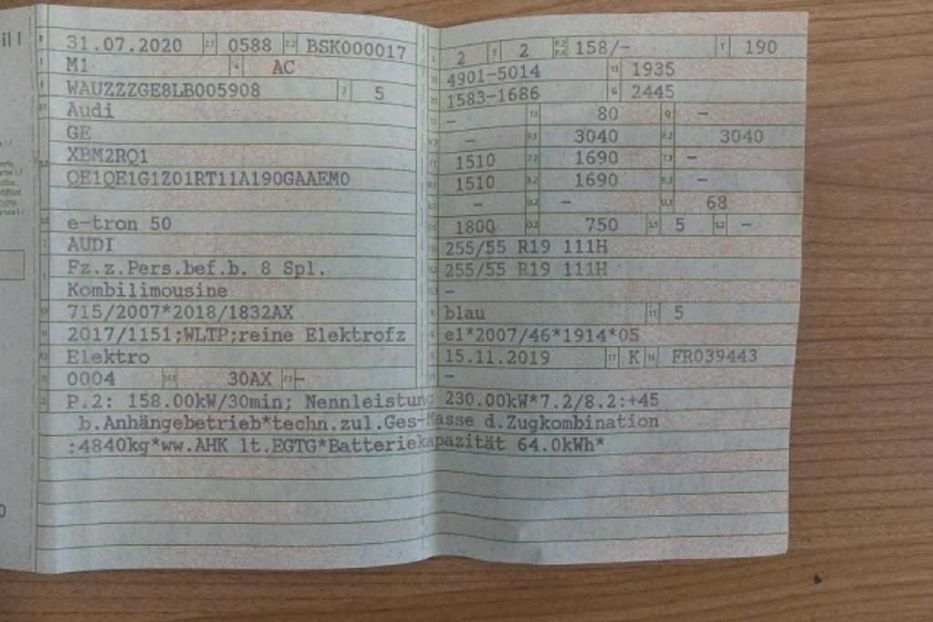 31.07.2020 0588 BSK000017
M1 AC
WAUZZZGE8LB005908 5
Audi
GE
XBM2RQ1
QE1QE1G1Z01RT11A190GAAEM0
e-tron 50
AUDI
Fz.z.Pers.bef.b. 8 Spl.
Kombilimousine
715/2007*2018/1832AX
2017/1151;WLTP;reine Elektrofz
Elektro
0004 30AX -
2 2 158/- 190
4901-5014 1935
1583-1686 2445
- 80 -
- 3040 3040
1510 1690 -
1510 1690 -
- - 68
1800 750 5 -
255/55 R19 111H
255/55 R19 111H
-
blau 5
e1*2007/46*1914*05
15.11.2019 K FR039443
-
P.2: 158.00kW/30min; Nennleistung 230.00kW*7.2/8.2:+45
b.Anhängebetrieb*techn.zul.Ges-Masse d.Zugkombination
:4840kg*ww.AHK lt.EGTG*Batteriekapazität 64.0kWh*